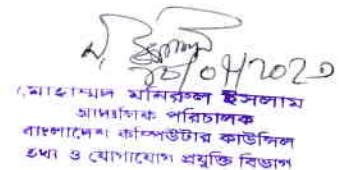 ২০/০৪/২০২৩
মোহাম্মদ মনিরুল ইসলাম
আঞ্চলিক পরিচালক
বাংলাদেশ কম্পিউটার কাউন্সিল
তথ্য ও যোগাযোগ প্রযুক্তি বিভাগ